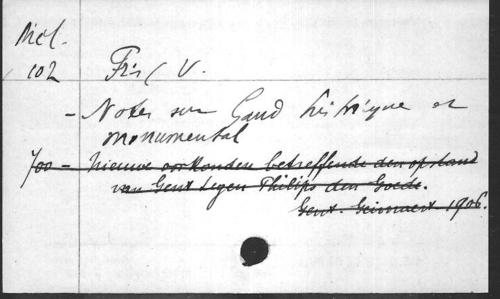 Mél.
102 Fris V.
- Notes sur Gand historique et
monumental
700 - Nieuwe oorkonden betreffende den opstand
van Gent tegen Philips den Goede.
Gent. 1906.